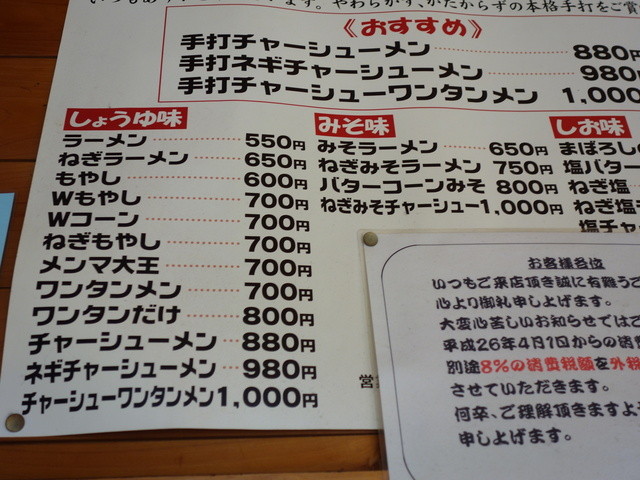 いつもあ
ます。やわらかず、かたからずの本格手打をご賞
《おすすめ》
手打チャーシューメン 880円
手打ネギチャーシューメン 980
手打チャーシューワンタンメン 1,000
しょうゆ味
ラーメン 550円
ねぎラーメン 650円
もやし 600円
Wもやし 700円
Wコーン 700円
ねぎもやし 700円
メンマ大王 700円
ワンタンメン 700円
ワンタンだけ 800円
チャーシューメン 880円
ネギチャーシューメン 980円
チャーシューワンタンメン 1,000円
みそ味
みそラーメン 650円
ねぎみそラーメン 750円
バターコーンみそ 800円
ねぎみそチャーシュー 1,000円
しお味
まぼろしの
塩バター
ねぎ塩
ねぎ塩
塩チャ
営
お客様各位
いつもご来店頂き誠に有難うご
心より御礼申し上げます。
大変心苦しいお知らせではご
平成26年4月1日からの消費
別途8%の消費税額を外税
させていただきます。
何卒、ご理解頂きますよ
申し上げます。